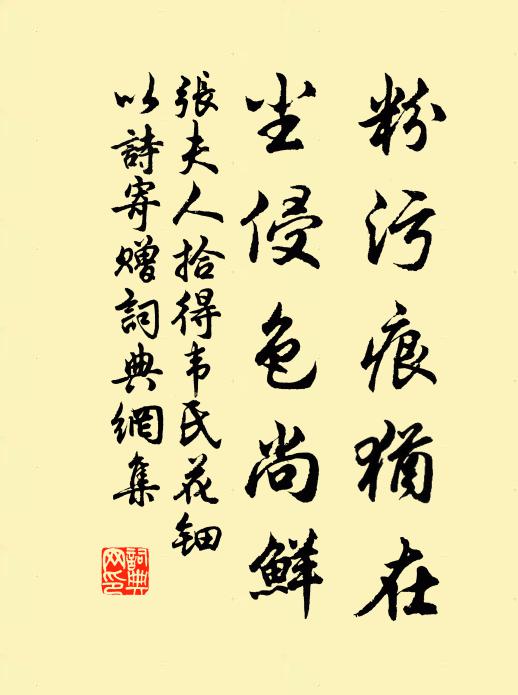 粉污痕犹在
尘侵色尚鲜
張夫人拾得韦氏花钿
以詩寄赠詞典網集
詞典网印